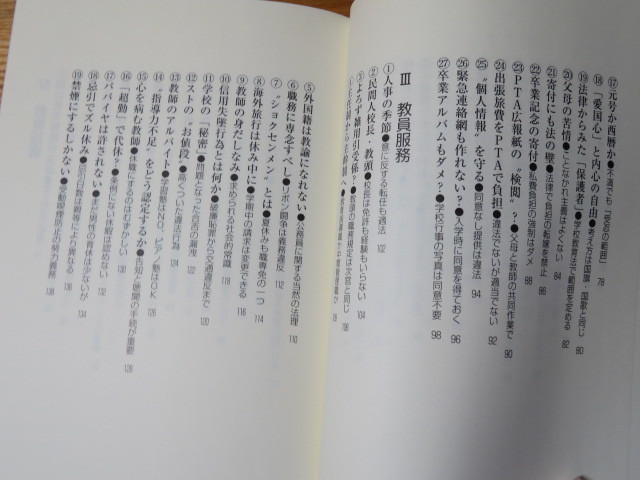 ⑰元号か西暦か●不適でも「裁量の範囲」 78
⑱「愛国心」と内心の自由●考え方は国旗・国歌と同じ 80
⑲法律からみた「保護者」●学校教育法で範囲を定める 82
⑳父母の苦情●ことなかれ主義はよくない 84
㉑寄付にも法の壁●法律で負担の転嫁を禁止 86
㉒卒業記念の寄付●私費負担の強制はダメ 88
㉓PTA広報紙の〝検閲〟?●父母と教師の共同作業で 90
㉔出張旅費をPTAで負担●違法でないが適当でない 92
㉕〝個人情報〟を守る●同意なし提供は違法 94
㉖緊急連絡網も作れない?●入学時に同意を得ておく 96
㉗卒業アルバムもダメ?●学校行事の写真は同意不要 98
Ⅲ 教員服務
①人事の季節●意に反する転任も適法 102
②民間人校長・教頭●校長は免許も経験もいらない 104
③よろず雑用引受係?●教頭の職務規定は次官と同じ 106
⑤外国籍は教諭になれない●公務員に関する当然の法理 110
⑥職務に専念すべし●リボン闘争は義務違反 112
⑦〝ショクセンメン〟とは●夏休みも職専免の一つ 114
⑧海外旅行は休み中に●学期中の請求は変更できる 116
⑨教師の身だしなみ●求められる社会的常識 118
⑩信用失墜行為とは何か●破廉恥罪から交通違反まで 120
⑪学校の「秘密」●問題となった合否の漏洩 122
⑫ストの〝お値段〟●高くついた違法行為 124
⑬教師のアルバイト●学習塾はNO、ピアノ塾はOK 126
⑭〝指導力不足〟をどう認定するか●告知と聴聞の手続が重要 128
⑮心を病む教師●休職にするのはむずかしい 130
⑯「超勤」で代休?●条例にない休暇は認めない 132
⑰パパイヤは許されない●まだ男性の育休は少ないが 134
⑱忌引でズル休み●忌引日数は親等により異なる 136
⑲禁煙にするしかない●受動喫煙防止の努力義務 138